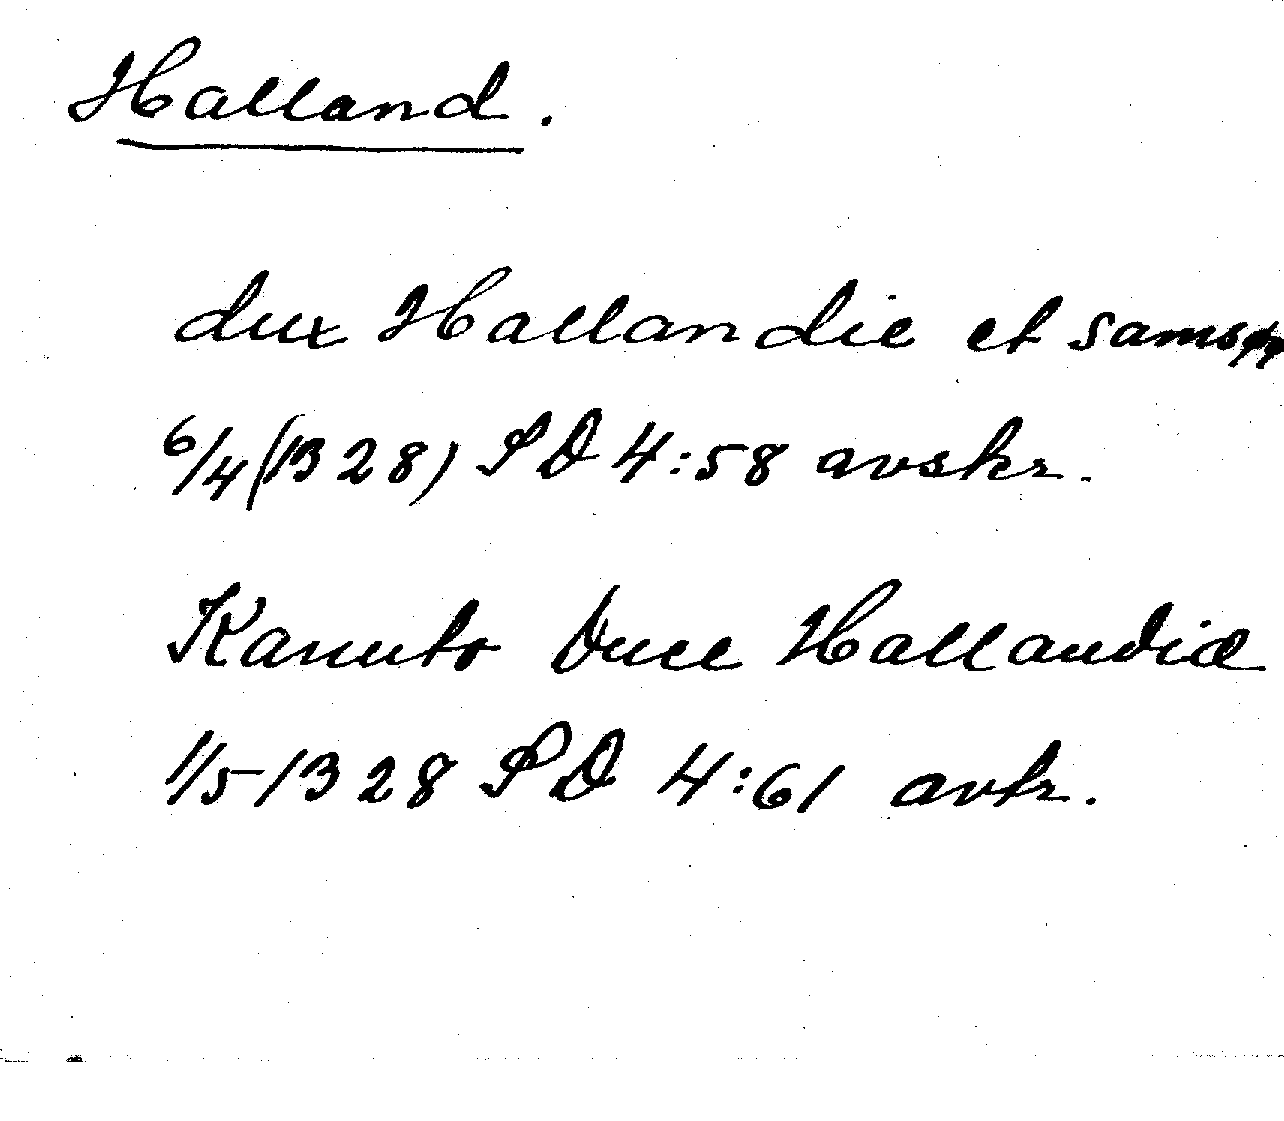 Halland.
dux Hallandie et
6/4 (1328) SD 4:58 avskr.
Kanuto Duce Hallandiæ
1/5 1328 SD 4:61 avkr.